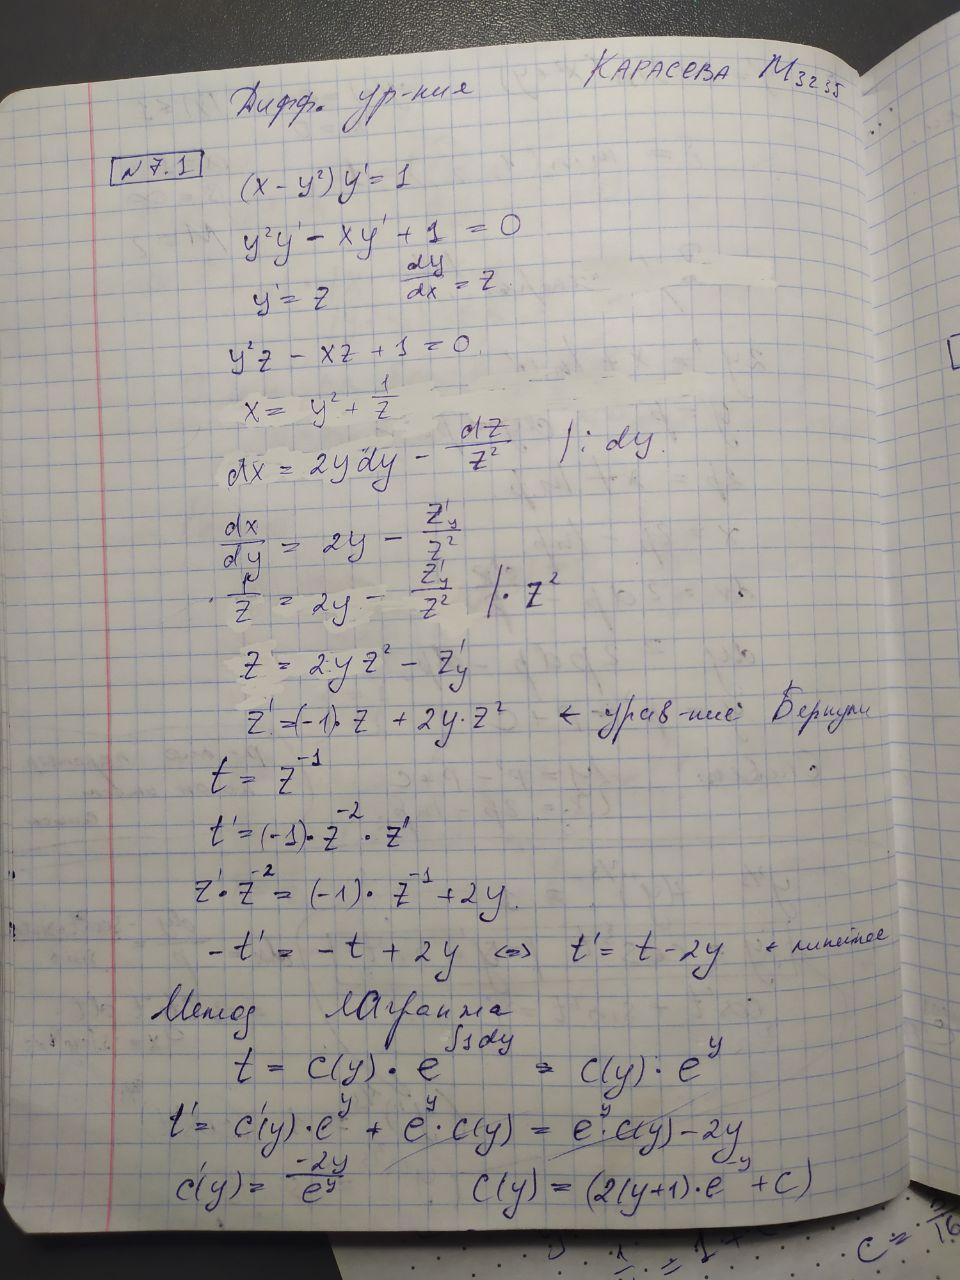 Дифф. ур-ния КАРАСЕВА М3235
№7.1
(x - y²) y' = 1
y²y' - xy' + 1 = 0
y' = z dy/dx = z
y²z - xz + 1 = 0
x = y² + 1/z
dx = 2ydy - dz/z² | : dy
dx/dy = 2y - z'y/z²
1/z = 2y - z'y/z² | · z²
z = 2yz² - z'y
z' = (-1)·z + 2y·z² ← урав-ние Бернули
t = z⁻¹
t' = (-1)·z⁻² · z'
z'·z⁻² = (-1)· z⁻¹ + 2y.
-t' = -t + 2y ⇔ t' = t - 2y ← линейное
Метод Лагранжа
t = c(y) · e^∫1dy = c(y) · e^y
t' = c'(y)·e^y + e^y·c(y) = e^y·c(y) - 2y
c'(y) = -2y/e^y c(y) = (2(y+1)·e^-y + c)
c =